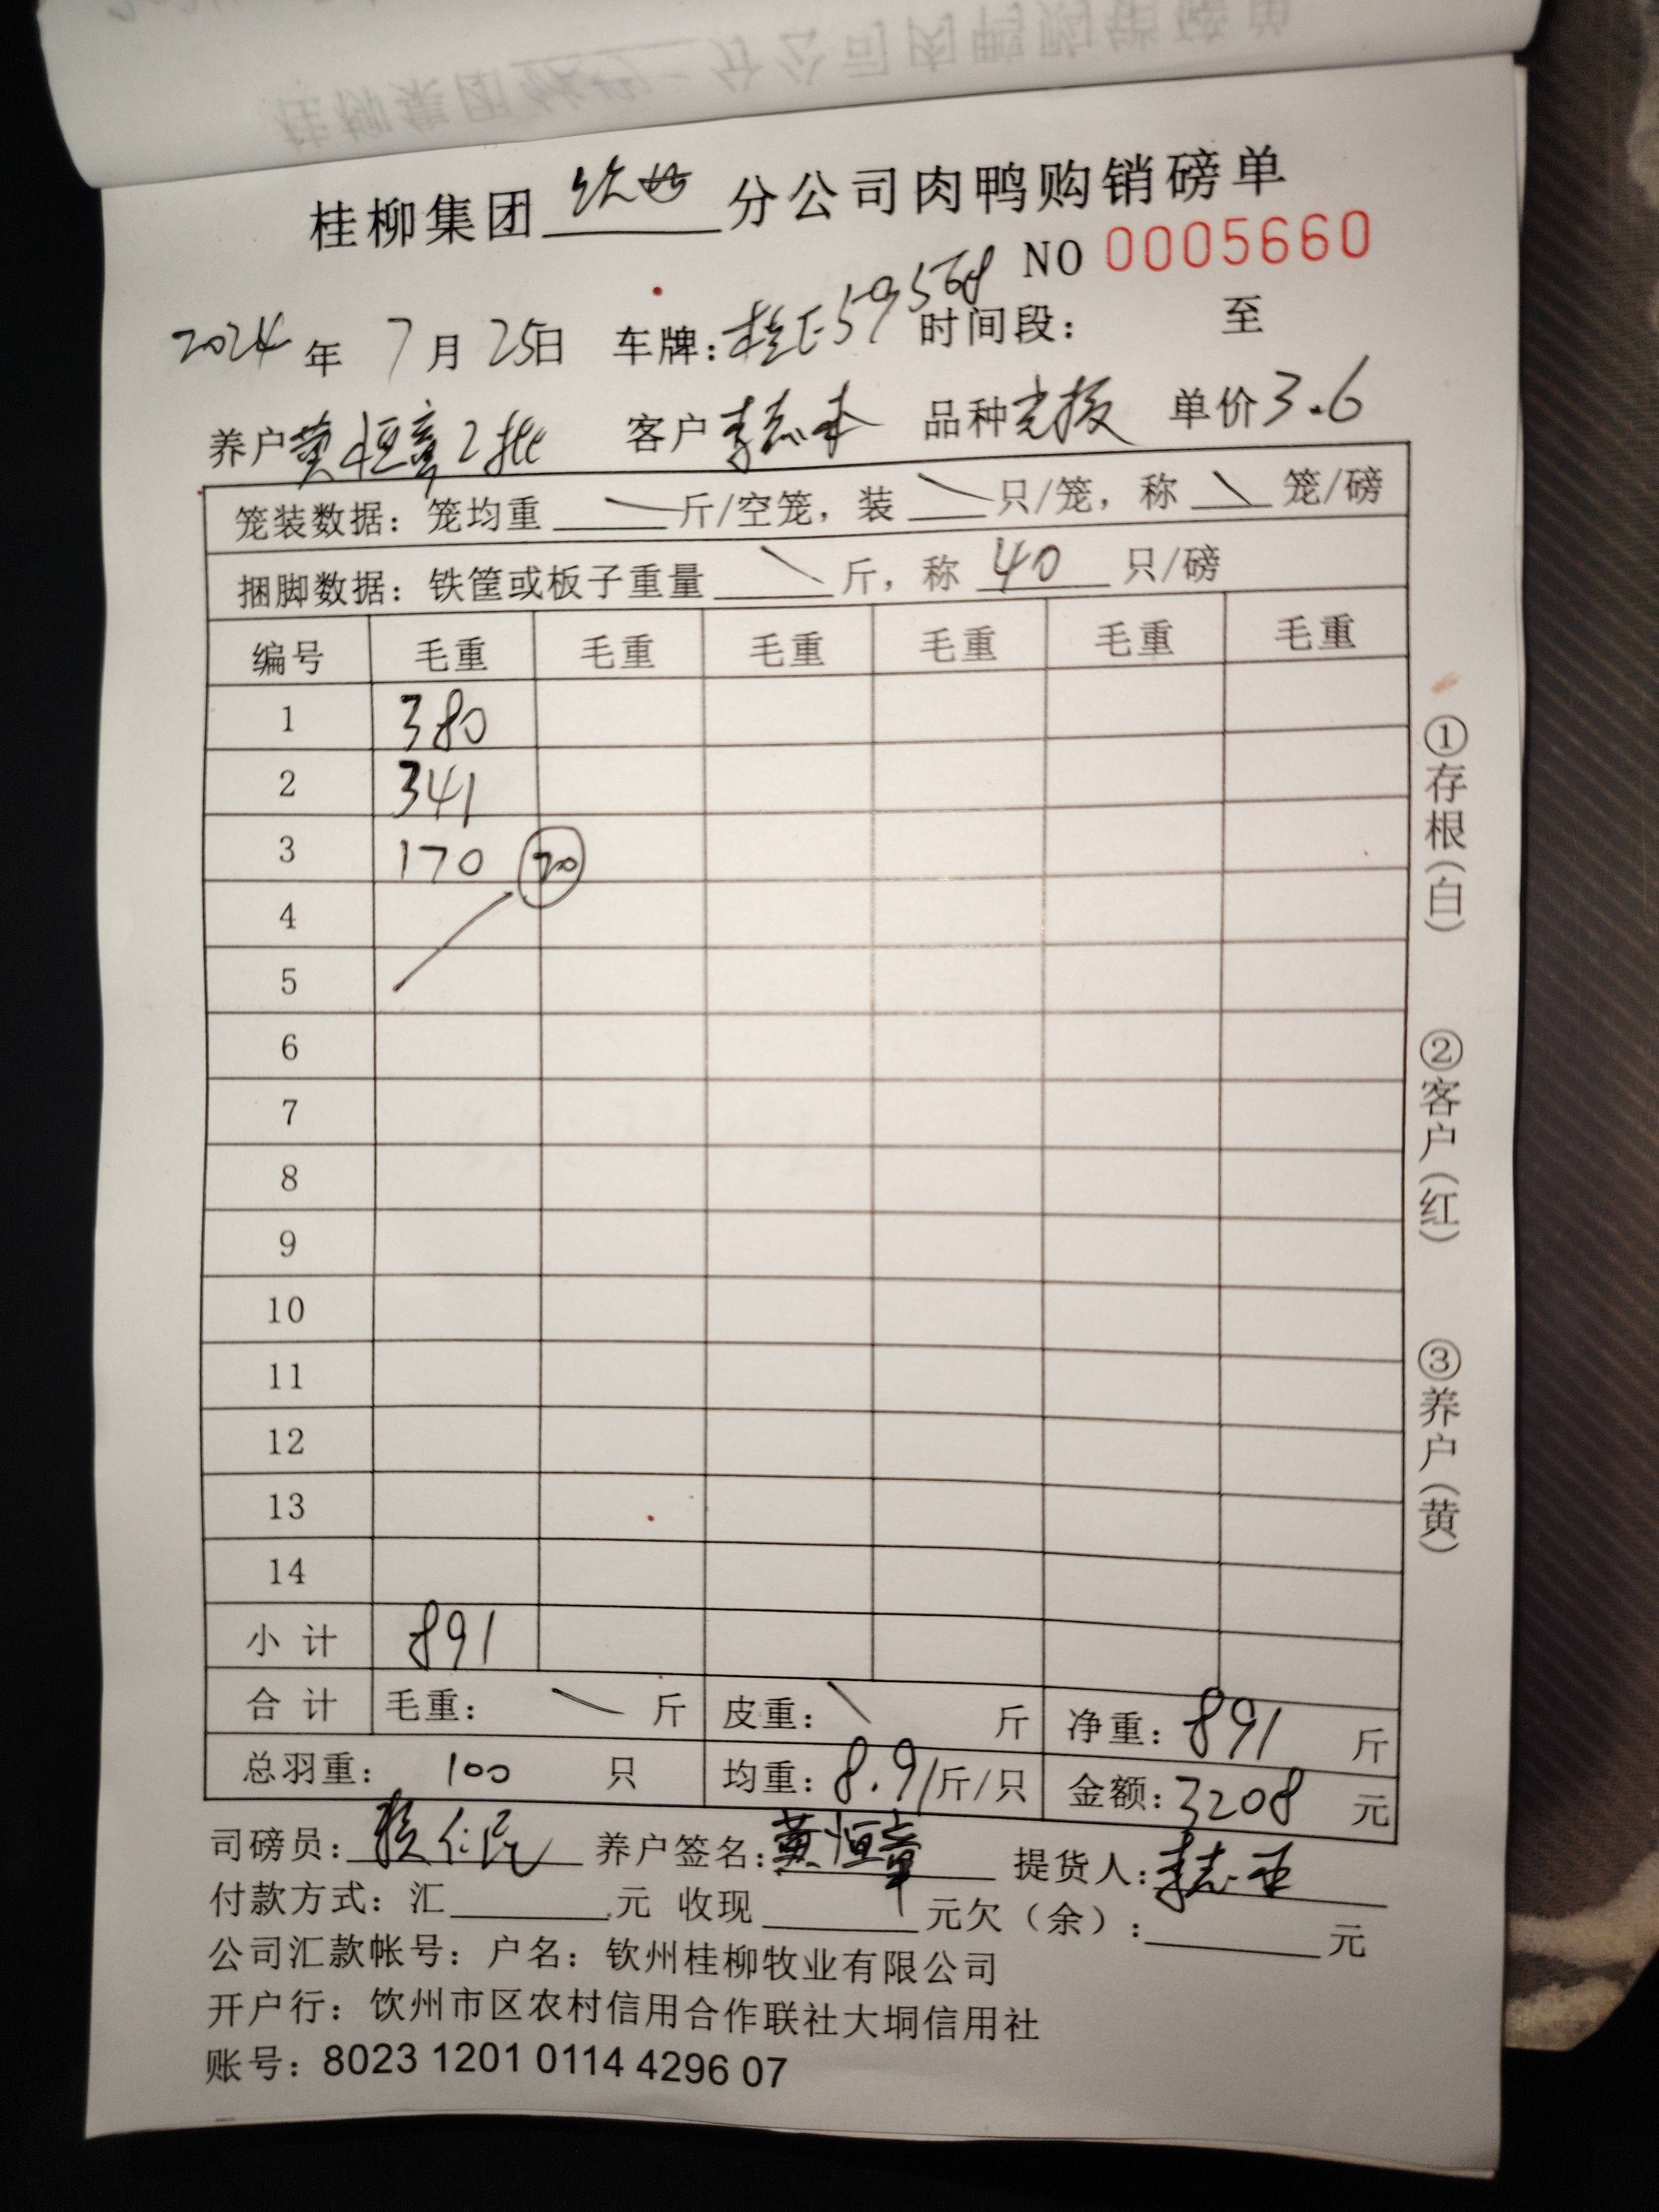 桂柳集团 钦州 分公司肉鸭购销磅单
NO 0005660
2024 年 7 月 25日 车牌: 时间段: 至
养户黄恒章2批 客户李志 品种 单价3.6
笼装数据: 笼均重 \ 斤/空笼, 装 \ 只/笼, 称 \ 笼/磅
捆脚数据: 铁筐或板子重量 \ 斤, 称 40 只/磅
编号 毛重 毛重 毛重 毛重 毛重 毛重
1 380
2 341
3 170 20
4
5
6
7
8
9
10
11
12
13
14
小计 891
合计 毛重: \ 斤 皮重: \ 斤 净重: 891 斤
总羽重: 100 只 均重: 8.91斤/只 金额: 3208 元
司磅员: 养户签名: 黄恒章 提货人: 李志
付款方式: 汇 元 收现 元欠(余): 元
公司汇款帐号: 户名: 钦州桂柳牧业有限公司
开户行: 饮州市区农村信用合作联社大垌信用社
账号: 8023 1201 0114 4296 07
①存根(白) ②客户(红) ③养户(黄)